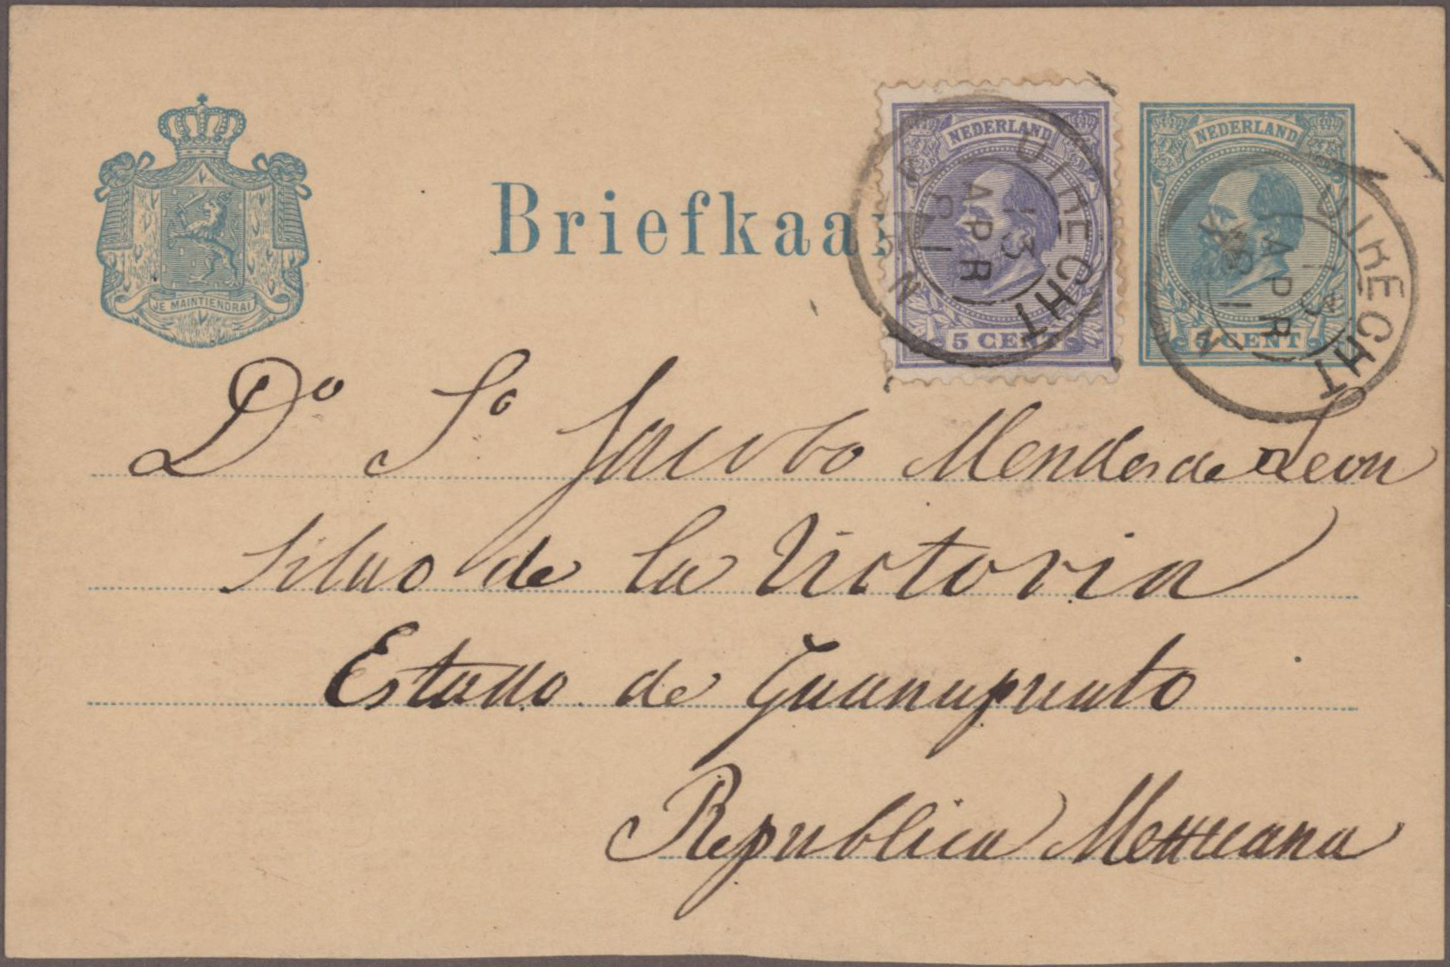 JE MAINTIENDRAI
Briefkaa
NEDERLAND
5 CENT
NEDERLAND
5 CENT
UTRECHT
13
APR
81
UTRECHT
13
APR
81
Dº Sº Jacobo Mendes de Leon
Silao de la Victoria
Estado de Guanajuato
Republica Mexicana